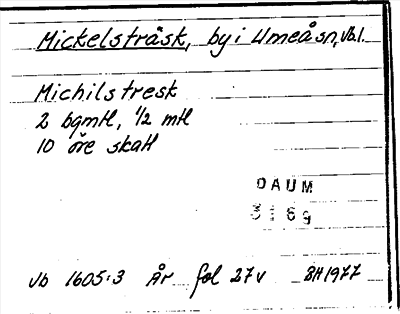 Mickelsträsk, by i Umeå sn, Vb l.
Michilstresk
2 bgmtl, 1/2 mtl
10 öre skatt
DAUM
3169
Vb 1605:3 År fol 27v BH1977